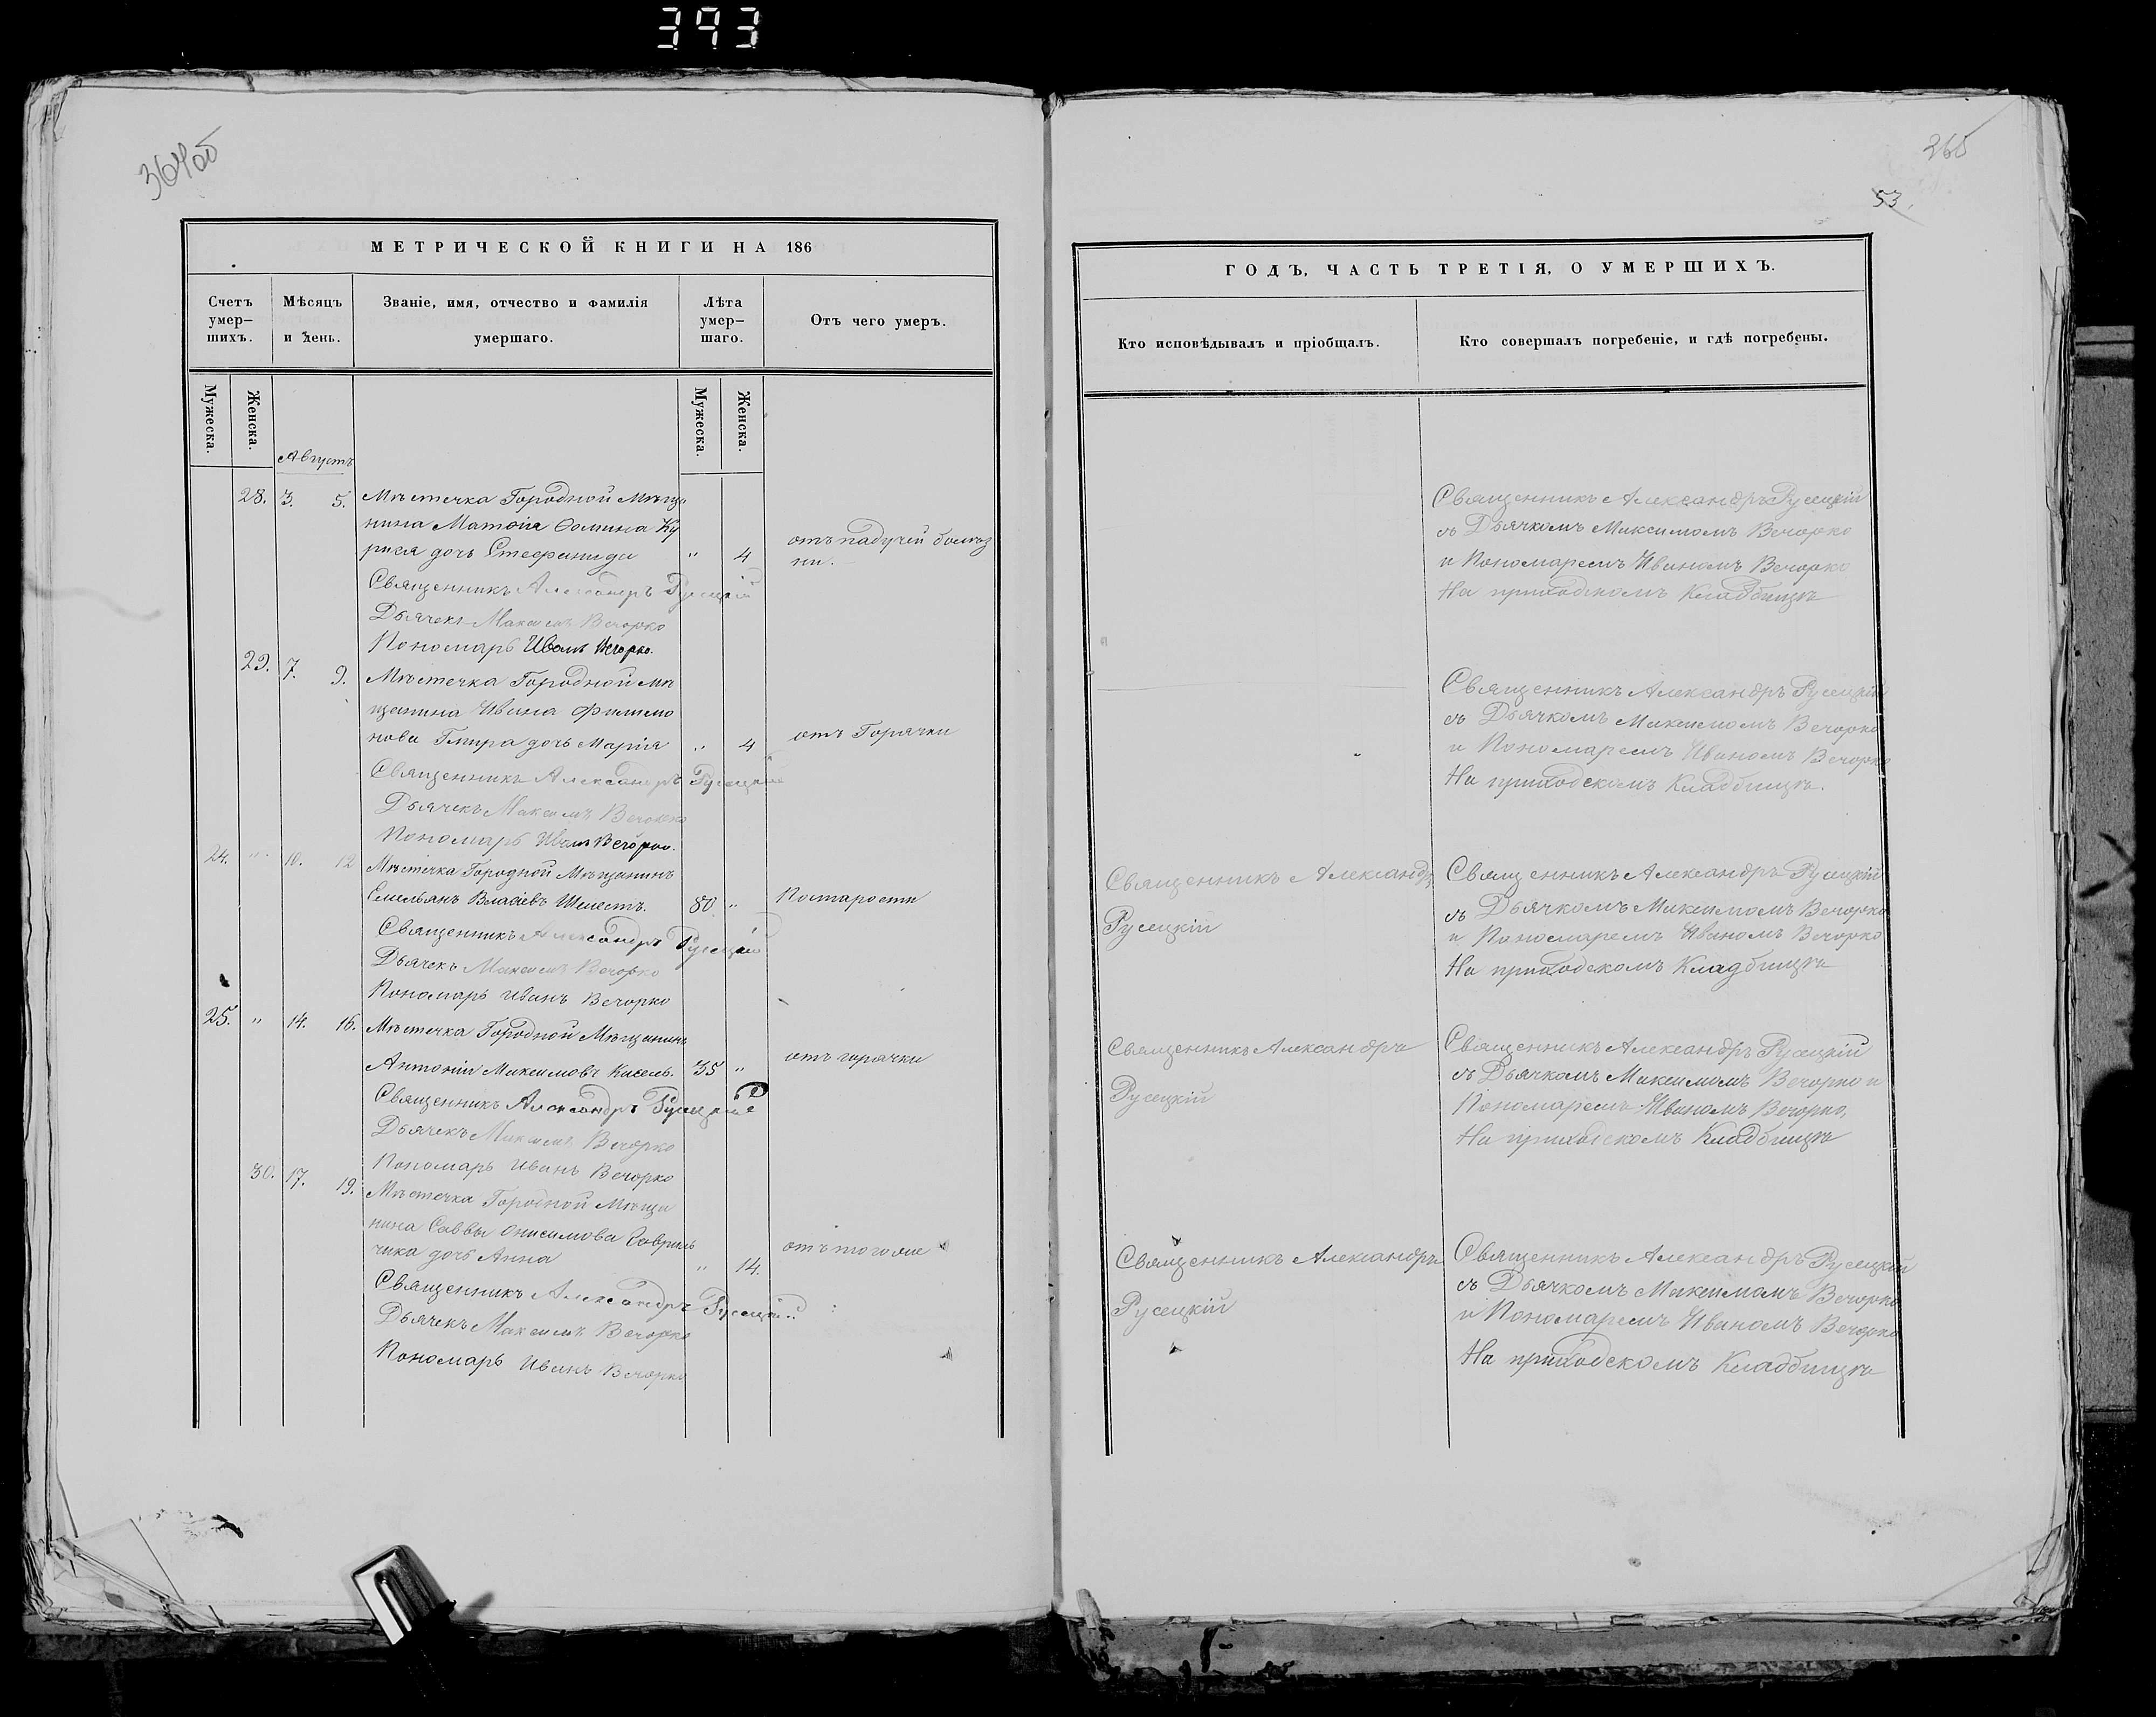 393
364об
МЕТРИЧЕСКОЙ КНИГИ НА 186
Счетъ умер-шихъ.
Мѣсяцъ и день.
Званіе, имя, отчество и фамилія умершаго.
Лѣта умер-шаго.
Отъ чего умеръ.
Мужеска.
Женска.
Августъ
Мужеска.
Женска.
28. 3. 5. Мѣстечка Городной Мѣща
нина Матѳія Ѳомина Ку
рися дочь Стефанида " 4 отъ падучей болѣз
ни.
Священникъ Александръ Русецкій
Дьячекъ Максимъ Вечорко
Пономарь Иванъ Вечорко.
29. 7. 9. Мѣстечка Городной мѣ
щанина Ивана Филимо
нова Гмира дочь Марія " 4 отъ Горячки
Священникъ Александръ Русецкій
Дьячекъ Максимъ Вечорко
Пономарь Иванъ Вечорко.
24. " 10. 12 Мѣстечка Городной Мѣщанинъ
Емельянъ Власіевъ Шелестъ. 80 " По старости
Священникъ Александръ Русецкій
Дьячекъ Максимъ Вечорко
Пономарь Иванъ Вечорко
25. " 14. 16. Мѣстечка Городной Мѣщанинъ
Антоній Максимовъ Кисель. 35 " отъ горячки
Священникъ Александръ Русецкій
Дьячекъ Максимъ Вечорко
Пономарь Иванъ Вечорко
30. 17. 19. Мѣстечка Городной Мѣща
нина Саввы Онисимова Гаврил
чика дочь Анна " 14. отъ того же
Священникъ Александръ Русецкій
Дьячекъ Максимъ Вечорко
Пономарь Иванъ Вечорко
365
53.
ГОДЪ, ЧАСТЬ ТРЕТІЯ, О УМЕРШИХЪ.
Кто исповѣдывалъ и пріобщалъ.
Кто совершалъ погребеніе, и гдѣ погребены.
Священникъ Александръ Русецкій
съ Дьячкомъ Максимомъ Вечорко
и Пономаремъ Иваномъ Вечорко
На приходскомъ Кладбищѣ
Священникъ Александръ Русецкій
съ Дьячкомъ Максимомъ Вечорко
и Пономаремъ Иваномъ Вечорко
На приходскомъ Кладбищѣ.
Священникъ Александръ
Русецкій
Священникъ Александръ Русецкій
съ Дьячкомъ Максимомъ Вечорко
и Пономаремъ Иваномъ Вечорко
На приходскомъ Кладбищѣ
Священникъ Александръ
Русецкій
Священникъ Александръ Русецкій
съ Дьячкомъ Максимомъ Вечорко и
Пономаремъ Иваномъ Вечорко,
На приходскомъ Кладбищѣ
Священникъ Александръ
Русецкій
Священникъ Александръ Русецкій
съ Дьячкомъ Максимомъ Вечорко
и Пономаремъ Иваномъ Вечорко
На приходскомъ Кладбищѣ